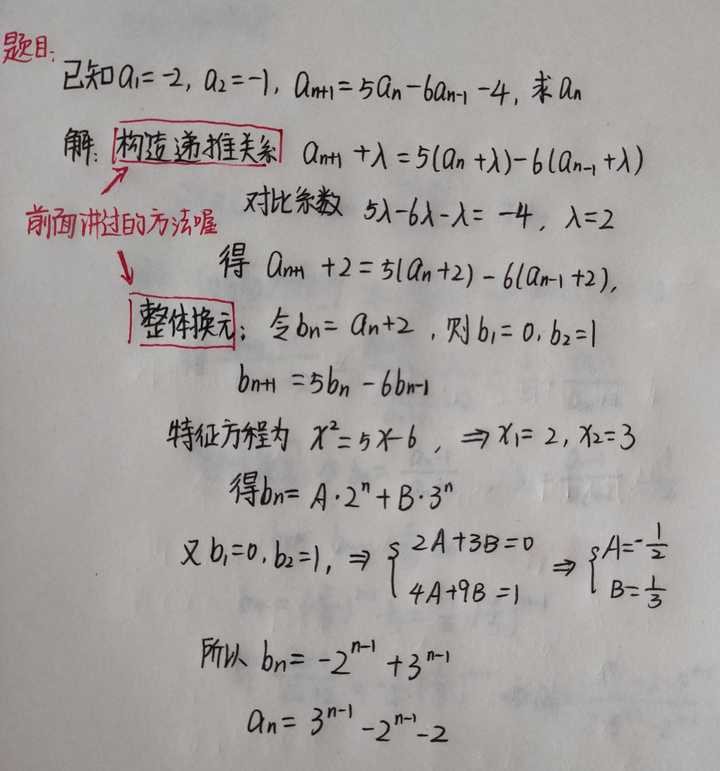 题目:
已知a₁=-2, a₂=-1, aₙ₊₁=5aₙ-6aₙ₋₁-4, 求aₙ
解: 构造递推关系 aₙ₊₁+λ=5(aₙ+λ)-6(aₙ₋₁+λ)
前面讲过的方法喔
对比系数 5λ-6λ-λ=-4, λ=2
得 aₙ₊₁+2=5(aₙ+2)-6(aₙ₋₁+2),
整体换元: 令bₙ=aₙ+2, 则b₁=0, b₂=1
bₙ₊₁=5bₙ-6bₙ₋₁
特征方程为 x²=5x-6, ⇒x₁=2, x₂=3
得bₙ=A·2ⁿ+B·3ⁿ
又b₁=0, b₂=1, ⇒ { 2A+3B=0 4A+9B=1 ⇒ { A=-1/2 B=1/3
所以 bₙ=-2ⁿ⁻¹+3ⁿ⁻¹
aₙ=3ⁿ⁻¹-2ⁿ⁻¹-2